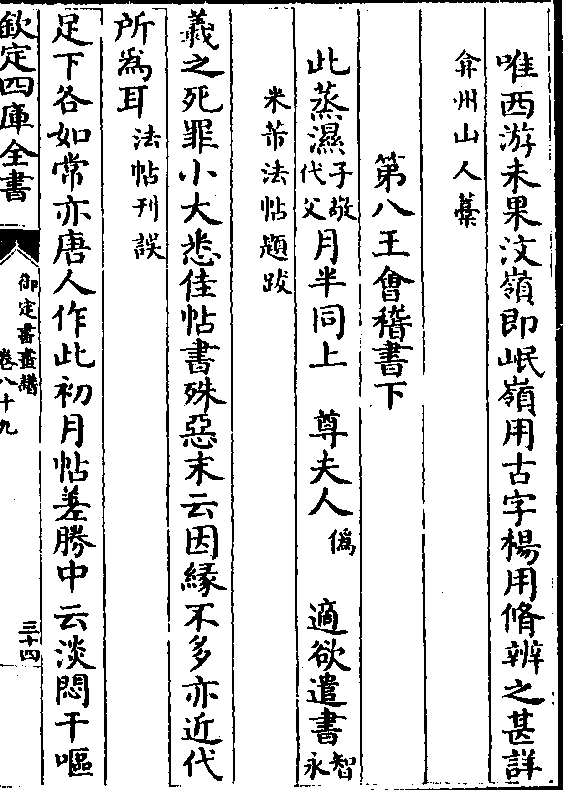 唯西游未果汶嶺即岷嶺用古字楊用脩辨之甚詳
弇州山人藁
第八王會稽書下
此蒸濕子敬代父月半同上 尊夫人僞 適欲遣書智永
米芾法帖題跋
羲之死罪小大悉佳帖書殊惡末云因緣不多亦近代
所爲耳法帖刊誤
足下各如常亦唐人作此初月帖差勝中云淡悶干嘔
欽定四庫全書
御定書畫譜
卷八十九
三十四